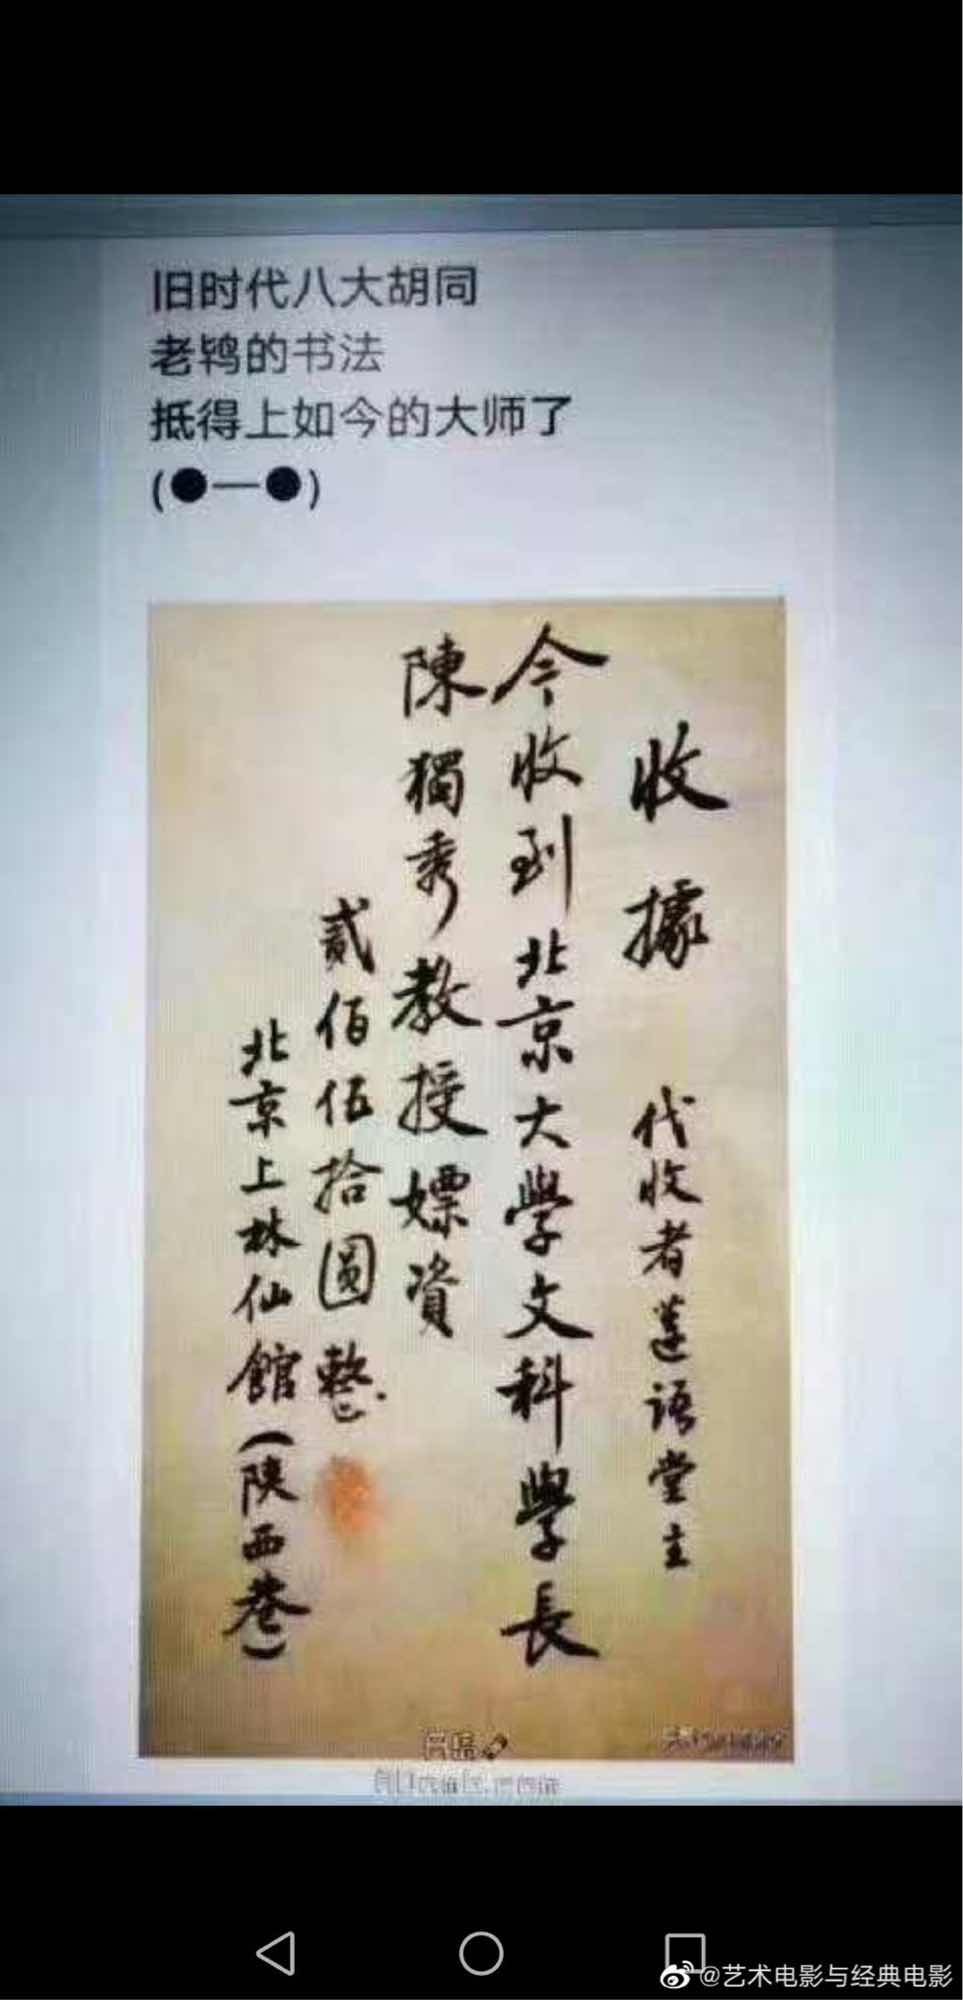 旧时代八大胡同
老鸨的书法
抵得上如今的大师了
(●—●)
收據 代收者莲语堂主
今收到北京大學文科學長
陳獨秀教授嫖資
貳佰伍拾圓整
北京上林仙館(陝西巷)
@艺术电影与经典电影